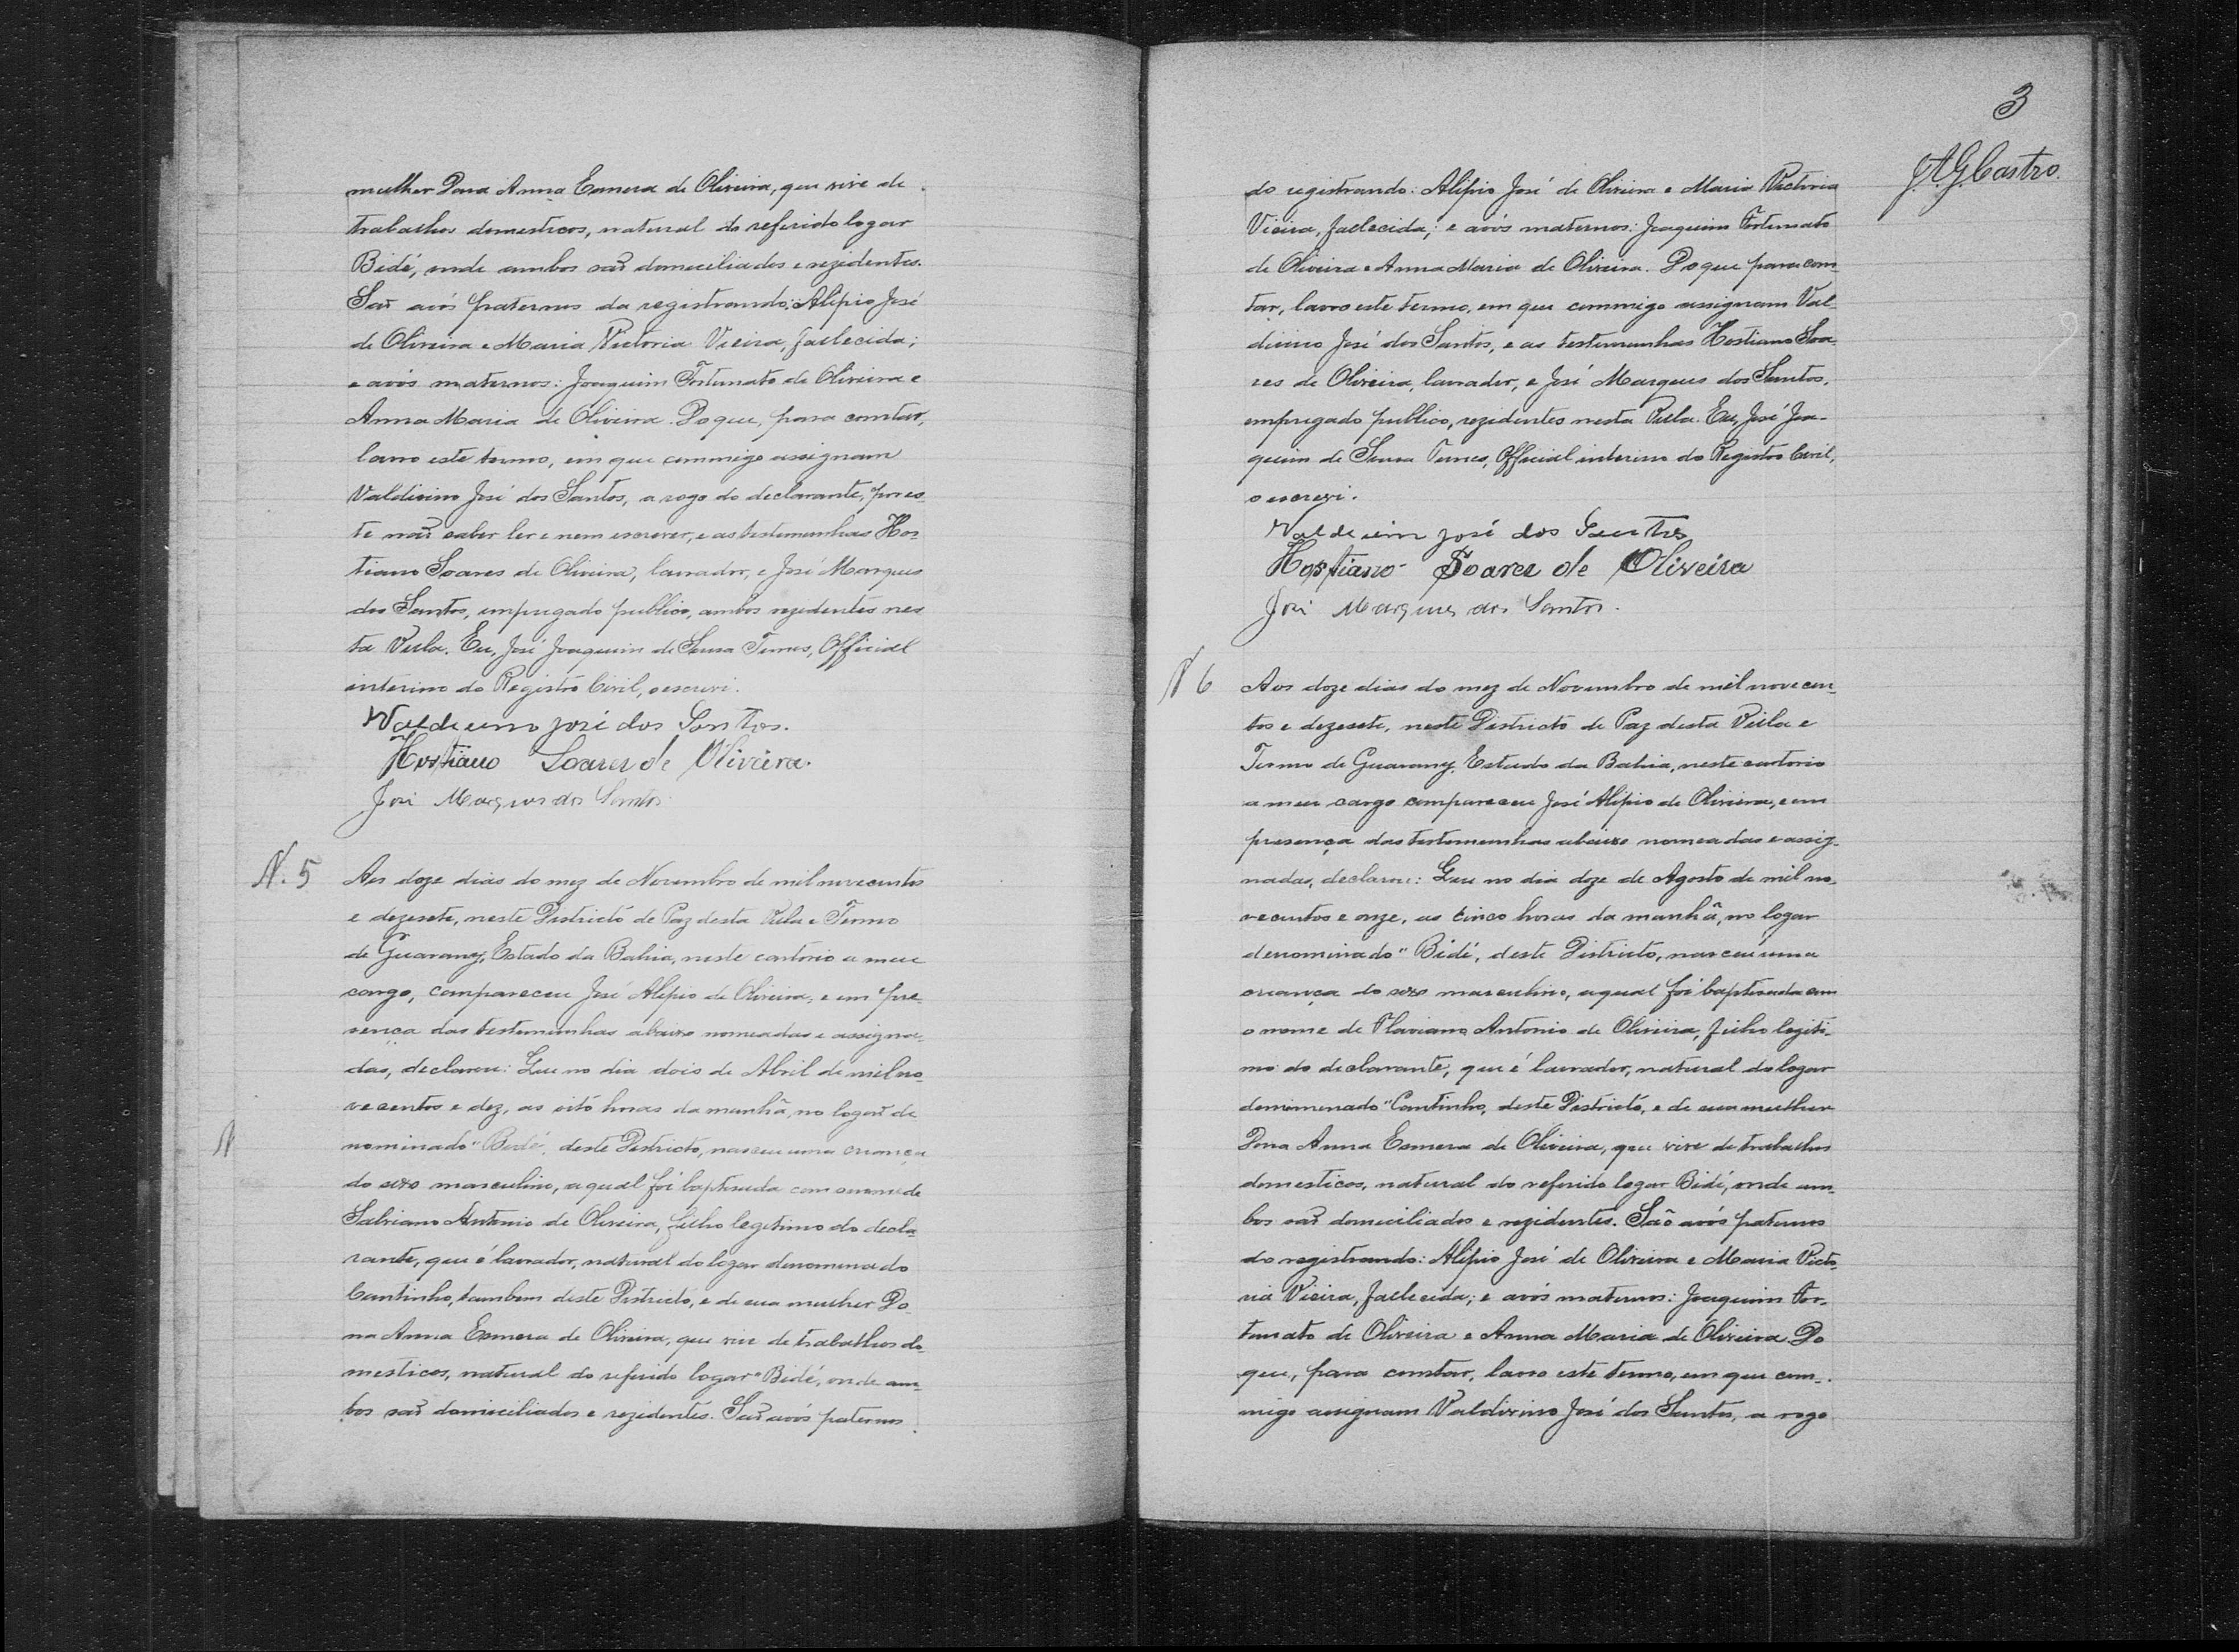 mulher Dona Anna Esmera de Oliveira, que vive de
trabalhos domesticos, natural do referido logar
Bidé, onde ambos saõ domiciliados e rezidentes.
Saõ avós paternos da registrando: Alipio José
de Oliveira e Maria Victoria Vieira, fallecida;
e avós maternos: Joaquim Fortunato de Oliveira e
Anna Maria de Oliveira. Do que, para constar,
lavro este termo, em que commigo assignam
Valdivino José dos Santos, a rogo do declarante, por es-
te naõ saber ler e nem escrever, e as testemunhas Hos-
tiano Soares de Oliveira, lavrador, e José Marques
dos Santos, empregado publico, ambos rezidentes nes
ta Villa. Eu, José Joaquim de Sousa Official
interino do Registro Civil, o escrevi.
José dos Santos.
Hostiano Soares de Oliveira.
José Marques dos Santos
N. 5
Aos doze dias do mez de Novembro de mil novecentos
e dezesete, neste Districto de Paz desta Villa e Termo
de Guarany, Estado da Bahia, neste cartorio a meu
cargo, compareceu José Alipio de Oliveira, e em pre-
sença das testemunhas abaixo nomeadas e assigna-
das, declarou: Que no dia dois de Abril de mil no-
vecentos e dez, as oito horas da manhã, no logar de
nominado "Bidé", deste Districto, nasceu uma criança
do sexo masculino, a qual foi baptisada com o nome de
Salviano Antonio de Oliveira, filho legitimo do decla-
rante, que é lavrador, natural do logar denominado
Cantinho, tambem deste Districto, e de sua mulher Do-
na Anna Esmera de Oliveira, que vive de trabalhos do-
mesticos, natural do referido logar "Bidé, onde am-
bos saõ domiciliados e rezidentes. Saõ avós paternos
3
J.A.G. Castro.
do registrando: Alipio José de Oliveira e Maria Victoria
Vieira, fallecida; e avós maternos: Joaquim Fortunato
de Oliveira e Anna Maria de Oliveira. Do que para cons-
tar, lavro este termo, em que commigo assignam Val-
divino José dos Santos, e as testemunhas Hostiano Soa-
res de Oliveira, lavrador, e José Marques dos Santos,
empregado publico, rezidentes nesta Villa. Eu, José Joa-
quim de Sousa Official interino do Registro Civil,
o escrevi.
José dos Santos
Hostiano Soares de Oliveira
José Marques dos Santos.
N 6
Aos doze dias do mez de Novembro de mil novecen-
tos e dezesete, neste Districto de Paz desta Villa e
Termo de Guarany, Estado da Bahia, neste cartorio
a meu cargo compareceu José Alipio de Oliveira, e em
presença das testemunhas abaixo nomeadas e assig-
nadas, declarou: Que no dia doze de Agosto de mil no-
vecentos e onze, as cinco horas da manhã, no logar
denominado "Bidé, deste Districto, nasceu uma
criança do sexo masculino, a qual foi baptisada com
o nome de Flaviano Antonio de Oliveira, filho legiti-
mo do declarante, que é lavrador, natural do logar
denominado "Cantinho, deste Districto, e de sua mulher
Dona Anna Esmera de Oliveira, que vive de trabalhos
domesticos, natural do referido logar Bidé, onde am-
bos saõ domiciliados e rezidentes. São avós paternos
do registrando: Alipio José de Oliveira e Maria Victo-
ria Vieira, fallecida; e avós maternos: Joaquim For-
tunato de Oliveira e Anna Maria de Oliveira Do
que, para constar, lavro este termo, em que com-
migo assignam Valdivino José dos Santos, a rogo